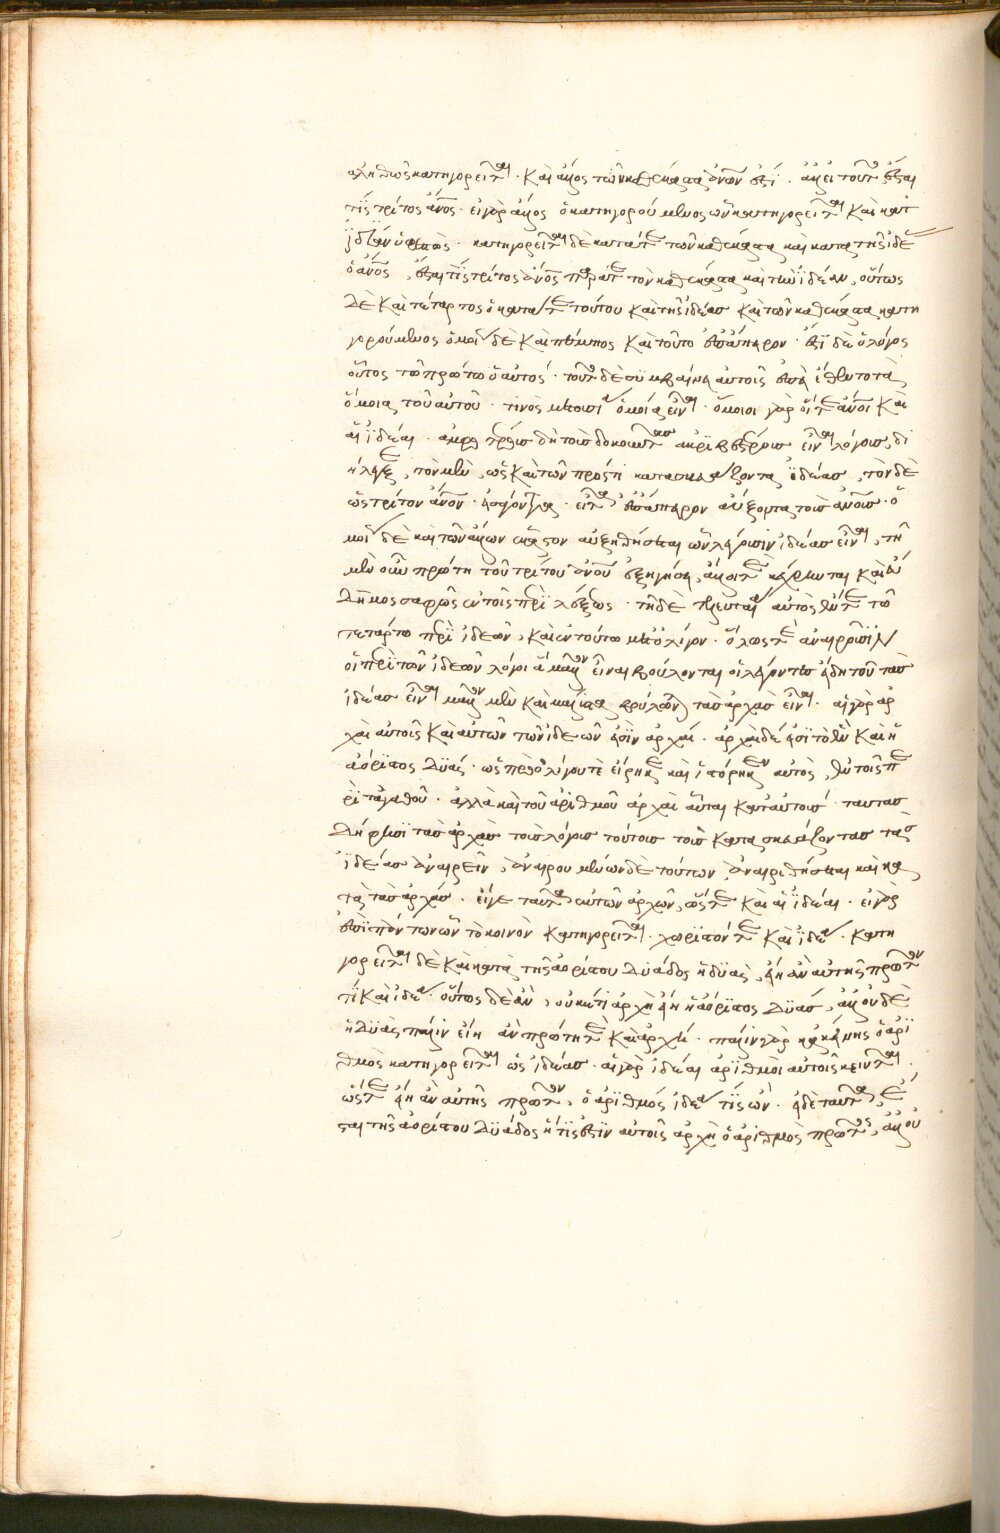 ἀληθῶς κατηγορεῖται · καὶ ἄλλος τῶν καθέκαστα ἀνων ἐστί · ἀλλ' εἰ τοῦτο ἔσται
τίς τρίτος ἄνος · εἰ γὰρ ἄλλος ὁ κατηγορούμενος ὧν κατηγορεῖται καὶ κατ'
ἰδίαν ὑφεστώς · κατηγορεῖται δὲ κατά τε τῶν καθέκαστα καὶ κατὰ τῆς ἰδέας
ὁ ἄνος, ἔσται τίς τρίτος ἄνος παρά τε τὸν καθέκαστα καὶ τὴν ἰδέαν, οὕτως
δὲ καὶ τέταρτος ὁ κατά τε τούτου καὶ τῆς ἰδέας καὶ τῶν καθέκαστα κατη
γορούμενος ὁμοίως δὲ καὶ πέμπτος καὶ τοῦτο ἐπ' ἄπειρον · ἔστι δὲ ὁ λόγος
οὗτος τῷ πρώτῳ ὁ αὐτός · τοῦτο δὲ συμβαίνει αὐτοῖς ἐπεὶ ἔθεντο τὰ
ὅμοια τοῦ αὐτοῦ τινὸς μετουσίᾳ ὅμοια εἶναι · ὅμοιοι γὰρ οἵ τε ἄνοι καὶ
αἱ ἰδέαι · ἀμφοτέρους δὴ τοὺς δοκοῦντας ἀκριβεστέρους εἶναι λόγους, δι
ήλεγξε, τὸν μὲν, ὡς καὶ τῶν πρός τι κατασκευάζοντα ἰδέας, τὸν δὲ
ὡς τρίτον ἄνον εἰσάγοντα · εἶτα ἐπ' ἄπειρον αὔξοντα τοὺς ἀνους · ὁ
μοίως δὲ καὶ τῶν ἄλλων ἕκαστον αὐξηθήσεται ὧν λέγουσιν ἰδέας εἶναι, τῇ
μὲν οὖν πρώτῃ τοῦ τρίτου ἀνου ἐξηγήσει, ἄλλοι τε κέχρηνται καὶ εὔ
δημος σαφῶς ἐν τοῖς περὶ λέξεως · τῇ δὲ τελευταίᾳ αὐτὸς ἔν τε τῷ
τετάρτῳ περὶ ἰδεῶν, καὶ ἐν τούτῳ μετ' ὀλίγον · ὅλως τε ἀναιροῦσιν
οἱ περὶ τῶν ἰδεῶν λόγοι ἃ μᾶλλον εἶναι βούλονται οἱ λέγοντες εἴδη τοῦ τὰς
ἰδέας εἶναι μᾶλλον μὲν καὶ μάλιστα βούλονται τὰς ἀρχὰς εἶναι · αἱ γὰρ ἀρ
χαὶ αὐτοῖς καὶ αὐτῶν τῶν ἰδεῶν εἰσὶν ἀρχαί · ἀρχαὶ δέ εἰσι τὸ ἓν καὶ ἡ
ἀόριστος δυάς · ὡς πρὸ ὀλίγου τὲ εἴρηκε καὶ ἱστόρηκεν αὐτὸς, ἐν τοῖς πε
ρὶ τἀγαθοῦ · ἀλλὰ καὶ τοῦ ἀριθμοῦ ἀρχαὶ αὗται κατ' αὐτούς · ταύτας
δή φησι τὰς ἀρχὰς τοὺς λόγους τούτους τοὺς κατασκευάζοντας τὰς
ἰδέας ἀναιρεῖν, ἀναιρουμένων δὲ τούτων, ἀναιρεθήσεται καὶ με
τὰ τὰς ἀρχάς · εἴγε ταῦτα ἐκ τῶν ἀρχῶν, ὥστε καὶ αἱ ἰδέαι · εἰ γὰρ
ἐπὶ πάντων ὧν τὸ κοινὸν κατηγορεῖται · χωριστόν τε καὶ ἰδέα · κατη
γορεῖται δὲ καὶ κατὰ τῆς ἀορίστου δυάδος ἡ δυὰς, εἴη ἂν αὐτῆς πρῶτόν
τι καὶ ἰδέα · οὕτως δὲ ἂν, οὐκέτι ἀρχὴ εἴη ἡ ἀόριστος δυάς, ἀλλ' οὐδὲ
ἡ δυὰς πάλιν εἴη ἂν πρώτη τε καὶ ἀρχή · πάλιν γὰρ κἀκείνης ὁ ἀρι
θμὸς κατηγορεῖται ὡς ἰδέας · αἱ γὰρ ἰδέαι ἀριθμοὶ αὐτοῖς κεῖνται ·
ὥστε εἴη ἂν αὐτῆς πρῶτον, ὁ ἀριθμός ἰδέα τίς ὤν · εἰ δὲ ταῦτα, ἔ
σται τῆς ἀορίστου δυάδος ἥτις ἐστὶν αὐτοῖς ἀρχὴ ὁ ἀριθμὸς πρῶτος, ἀλλ' οὐ